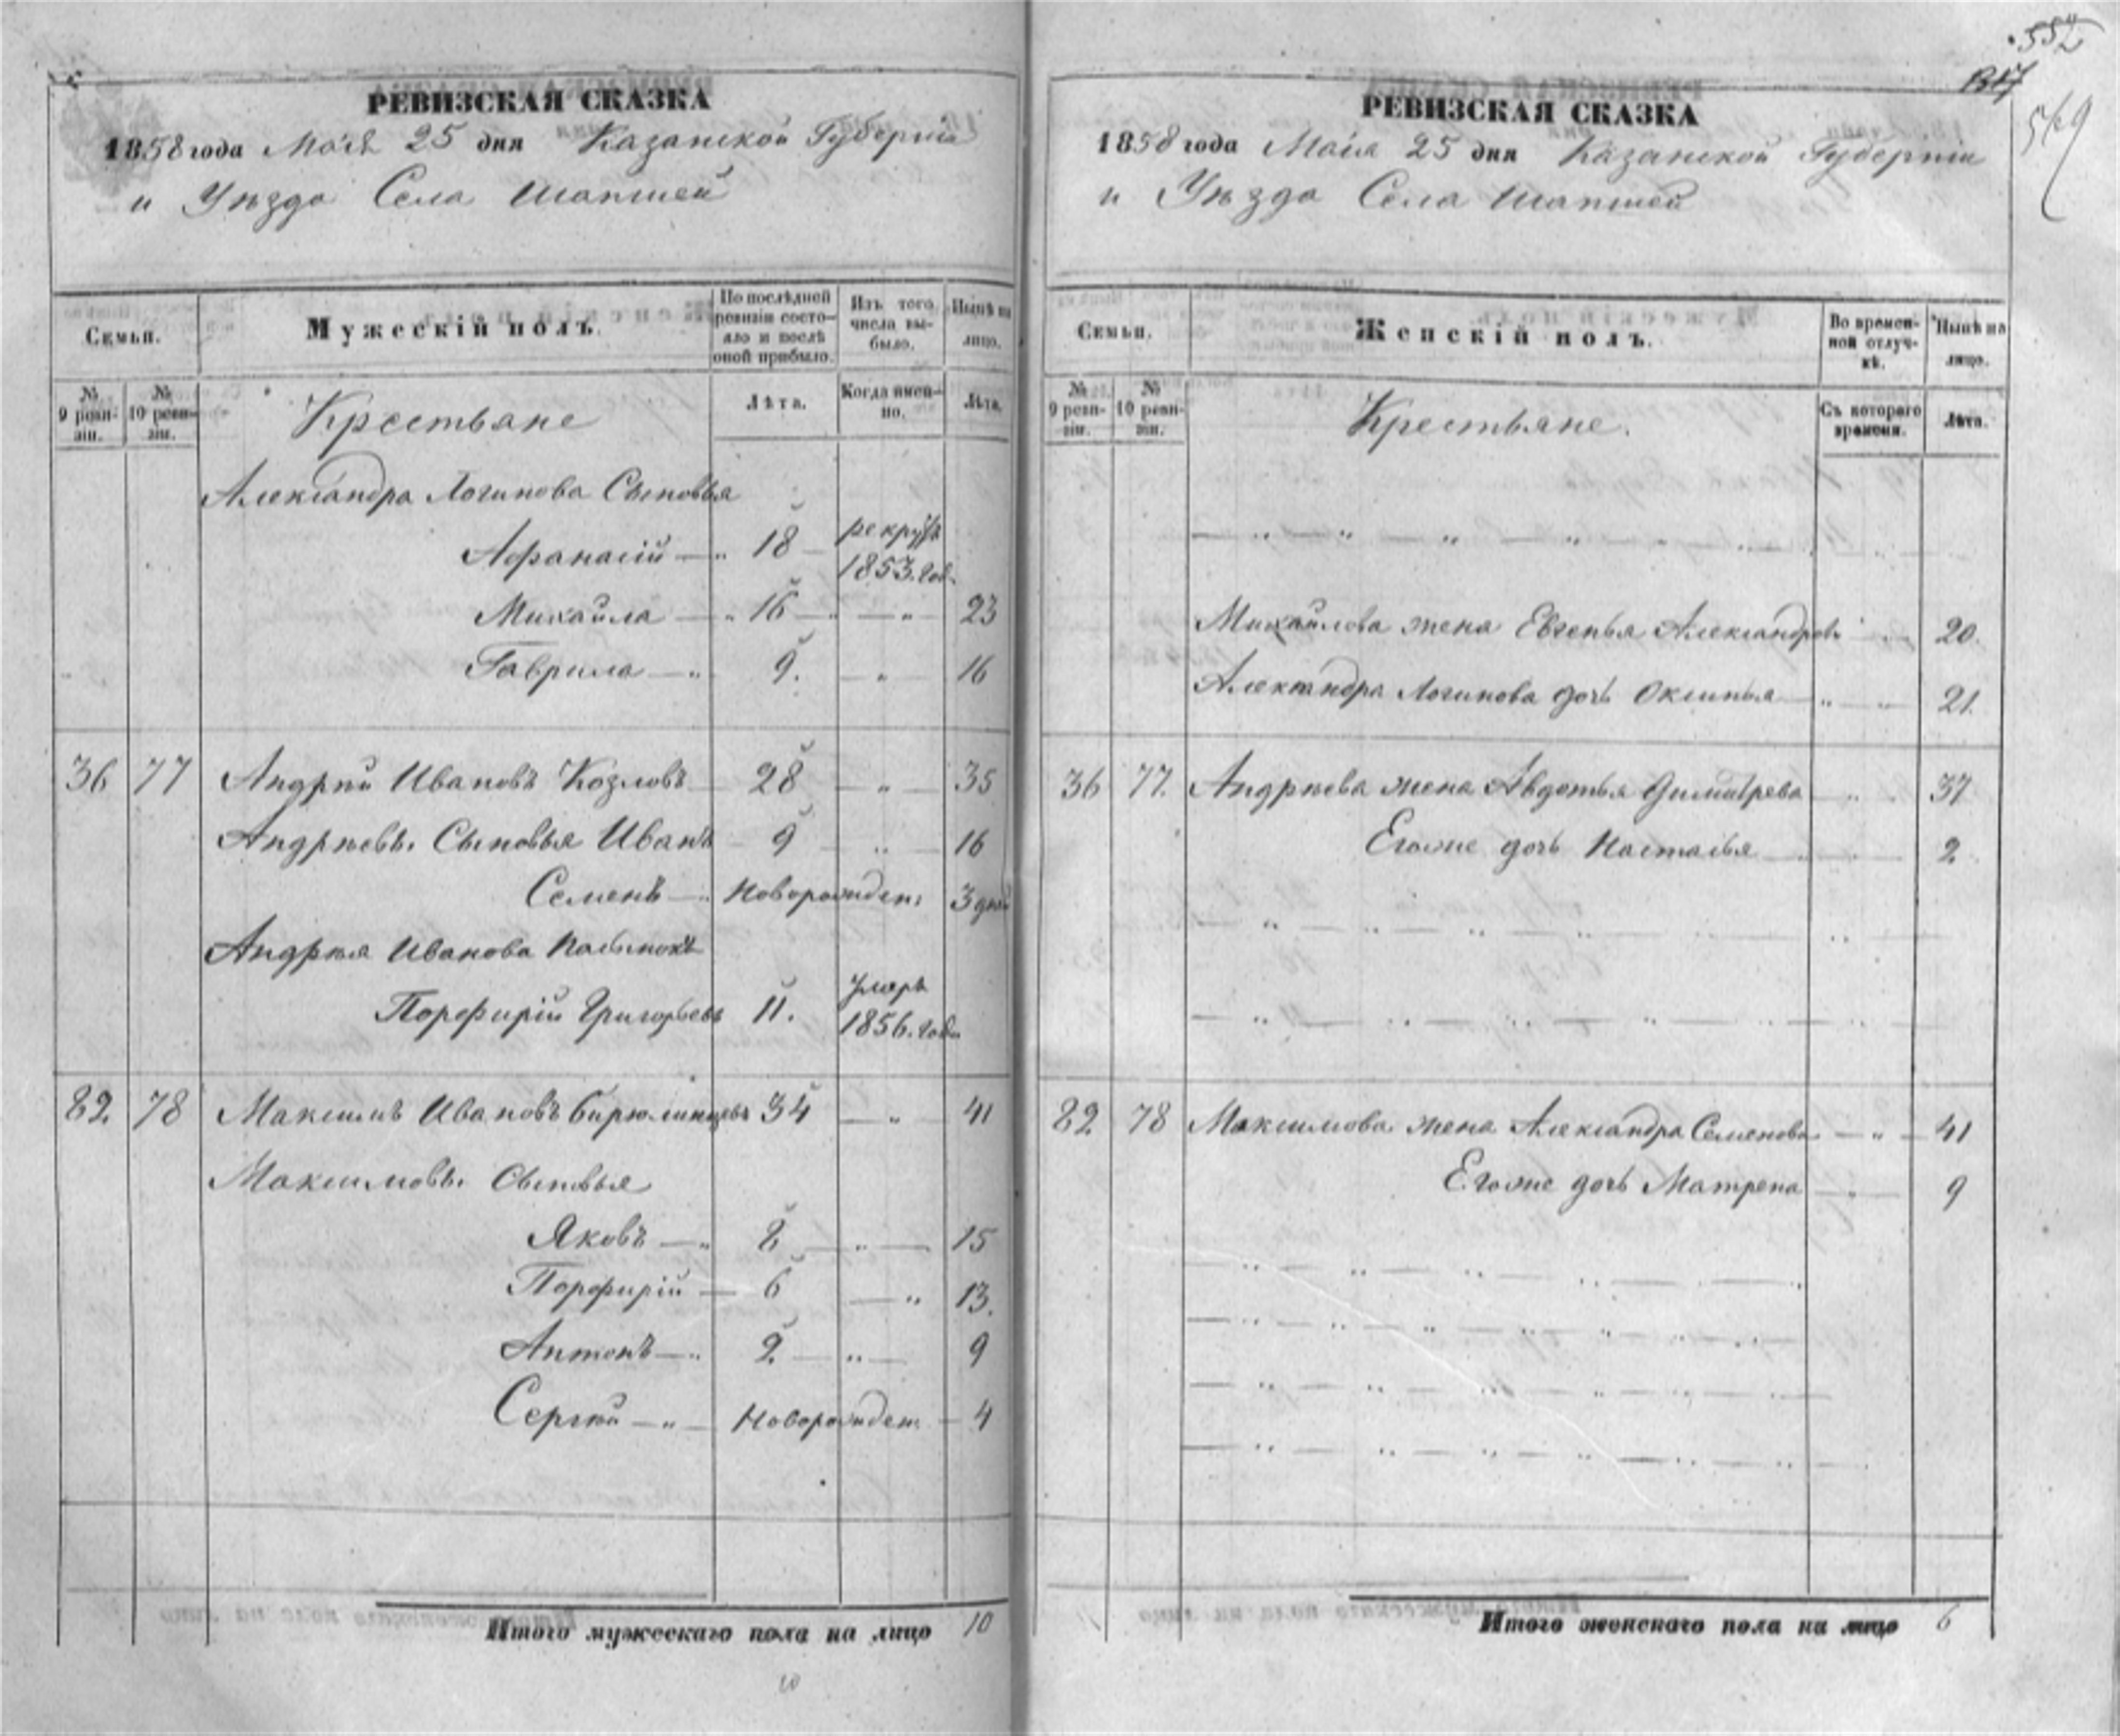 РЕВИЗСКАЯ СКАЗКА
1858 года Маія 25 дня Казанской Губерніи
и Уѣзда Села Шапшей
Семьи.
Мужескій полъ.
По послѣдней ревизіи состояло и послѣ оной прибыло.
Изъ того числа выбыло.
Нынѣ на лицо.
№ 9 ревизіи.
№ 10 ревизіи.
Крестьяне
Лѣта.
Когда именно.
Лѣта.
Александра Логинова Сыновья
Афанасій — „ 18 рекрутъ 1853. год.
Михайла — „ 16 — „ — 23
Гаврила — „ 9. — „ — 16
36 77 Андрѣй Ивановъ Козловъ 28 — „ — 35
Андрѣевы Сыновья Иванъ 9 — „ — 16
Семенъ — „ Новорожден. 3 дней
Андрѣя Иванова Пасынокъ
Порфирій Григорьевъ 11. умеръ 1856. года
82 78 Максимъ Ивановъ Бирюлинцевъ 34 — „ — 41
Максимовы Сыновья
Яковъ — „ 8 — „ — 15
Порфирій — 6 — „ 13.
Антонъ — „ 2 — „ — 9
Сергѣй — „ — Новорожден. — 4
Итого мужескаго пола на лицо 10
10
552
569
РЕВИЗСКАЯ СКАЗКА
1858 года Маія 25 дня Казанской Губерніи
и Уѣзда Села Шапшей
Семьи.
Женскій полъ.
Во временной отлучкѣ.
Нынѣ на лицо.
№ 9 ревизіи.
№ 10 ревизіи.
Крестьяне.
Съ котораго времени.
Лѣта.
Михайлова жена Евгенья Александрова „ 20.
Александра Логинова дочь Оксинья — „ 21.
36 77. Андрѣева жена Авдотья Димитрева — „ 37
Егоже дочь Настасья — „ — 2
82 78 Максимова жена Александра Семенова — „ — 41
Егоже дочь Матрена — „ — 9
Итого женскаго пола на лицо 6